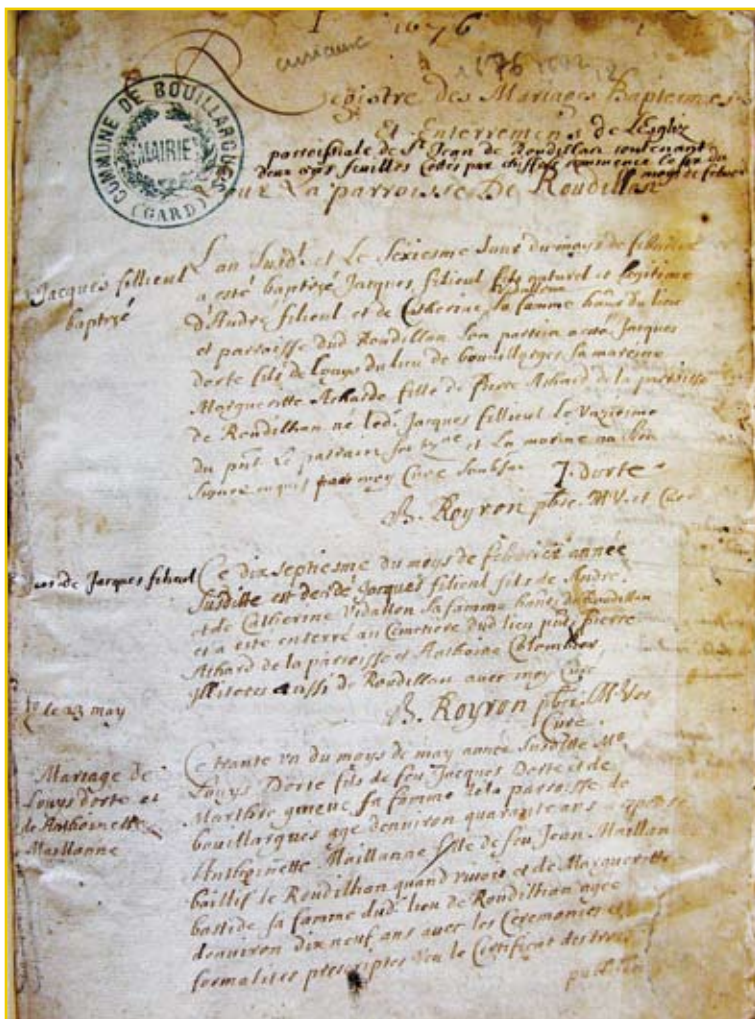 1676
1676
COMMUNE DE BOUILLARGUES
MAIRIE
(GARD)
Registre des Mariages Baptemes
Et Enterremens de L'Esglize
paroissiale de St Jean de Roudillan contenant
deux feuilles commence le
moys de
Pour La parroisse De Roudillan
Jacques fillieul
baptizé
L'an Susd. et Le Sexiesme Jour du moys de
a esté baptizé Jacques filieul fils naturel et legitime
d'André filieul et de Catherine Vidallonne sa famme du lieu
et parroisse dud Roudillan Son parrin a esté Jacques
dorte fils de Louys du lieu de bouillarges sa mareine
Margueritte Acharde fille de Pierre Achard de la paroisse
de Roudilhan né led. Jacques fillieul le
du pnt Le parrain et La marine
Signer moy Cure Soubsne J. Dorte
Royron pbre et Curé
de Jacques filieul
Ce dix septiesme du moys de febvrier année
Susditte est decedé Jacques filieul fils de André
et de Catherine Vidallon sa famme du Roudillan
et a esté enterré au Cemetiere dud lieu pnts Pierre
Achard de la parroisse et Anthoine Colombier
aussi de Roudillan avec moy Curé
Royron pbre
Curé
le 23 may
Mariage de
Louys dorte et
de Anthoinette
Maillanne
Ce trante un du moys de may année Susditte
Louys Dorte fils de feu Jacques Dorte et de
Marthre sa famme de la paroisse de
bouillargues agé denviron quarante ans a
Anthoinette Maillanne fille de feu Jean Maillan
baillif de Roudilhan quand vivoit et de Margueritte
bastide sa famme dud. lieu de Roudilhan agee
denviron dix neuf ans avec les Ceremonies et
formalités prescriptes veu le Certificat des trois